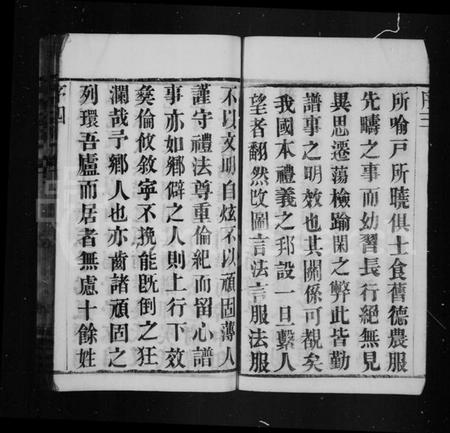 序三
所喻戸所曉俱士食舊德農服
先疇之事而幼習長行絕無見
異思遷蕩檢踰閑之弊此皆勤
譜事之明效也其關係可觀矣
我國本禮義之邦設一旦繫人
望者翻然改圖言法言服法服
不以文明自炫不以頑固薄人
謹守禮法尊重倫紀而留心譜
事亦如鄉僻之人則上行下效
彝倫攸敘寧不挽能旣倒之狂
瀾哉予鄉人也亦齒諸頑固之
列環吾廬而居者無慮十餘姓
序四